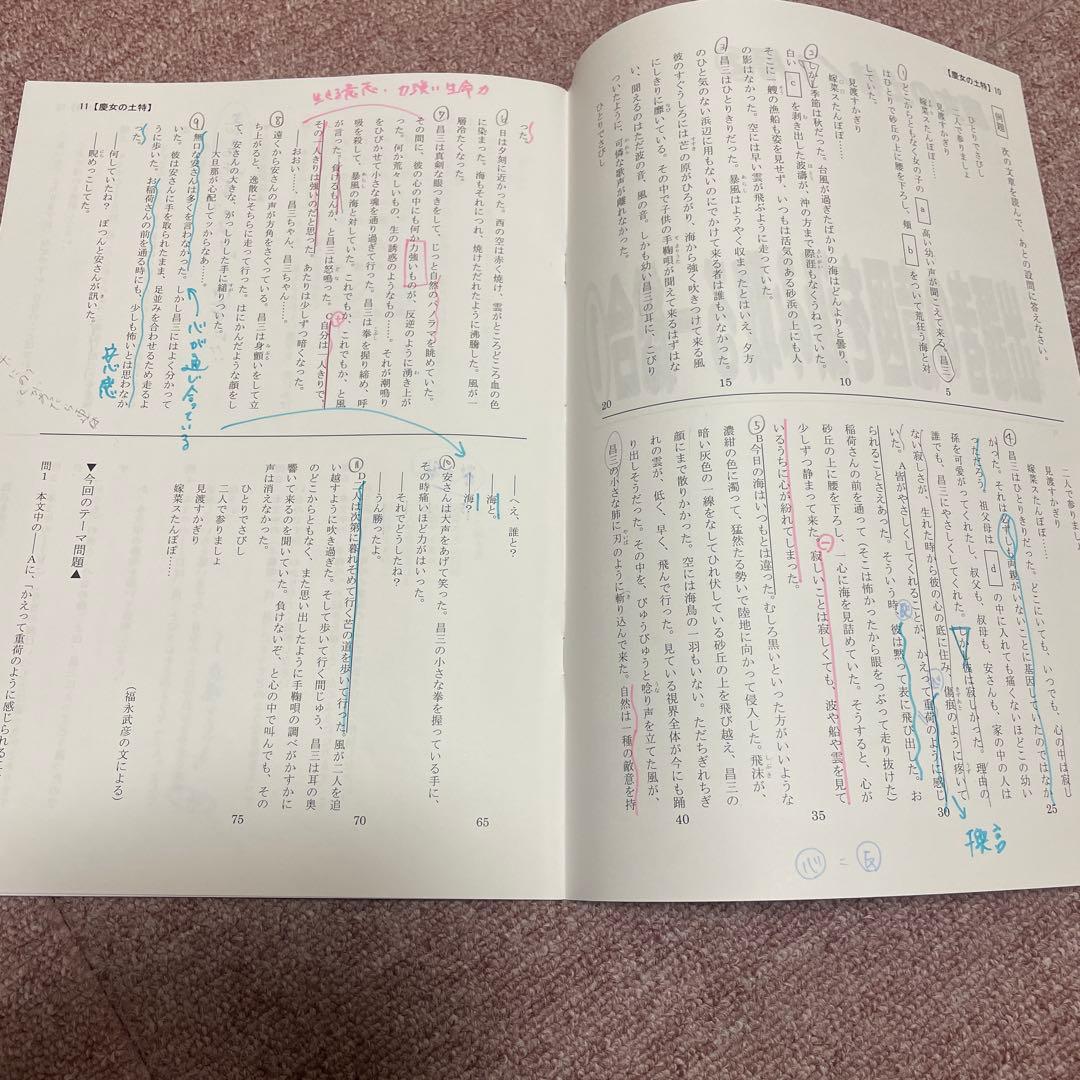 【慶女の土特】 10
例題 次の文章を読んで、あとの設問に答えなさい。
ひとりでさびし
二人で參りましょ
見渡すかぎり
嫁菜スたんぽぽ……
① どこからともなく女の子の a 高い幼い声が聞こえて来る。昌三
はひとりで砂丘の上に腰を下ろし、頰 b をついて荒狂う海と対
していた。
見渡すかぎり
嫁菜スたんぽぽ……
② しかし季節は秋だった。台風が過ぎたばかりの海はどんよりと曇り、
白い c を剥き出した波濤が、沖の方まで際涯もなくうねっていた。
そこに一艘の漁船も姿を見せず、いつもは活気のある砂浜の上にも人
の影はなかった。空には早い雲が飛ぶように走っていた。
③ 昌三はひとりきりだった。暴風はようやく収まったとはいえ、夕方
のひと気のない浜辺に用もないのにでかけて来る者は誰もいなかった。
彼のすぐうしろには芒の原がひろがり、海から強く吹きつけて来る風
にしきりに靡いている。その中で子供の手鞠唄が聞えて来るはずはな
い、聞えるのはただ波の音、風の音。しかも幼い昌三の耳に、こびり
ついたように、可憐な歌声が離れなかった。
ひとりでさびし
5
10
15
20
二人で参りましょ
見渡すかぎり
嫁菜スたんぽぽ……
④ 昌三はひとりきりだった。どこにいても、いつでも、心の中は寂し
かった。それは必ずしも両親がいないことに基因していたのではなか
ったろう。祖父母は d の中に入れても痛くないほどこの幼い
孫を可愛がってくれたし、叔父も、叔母も、安さんも、家の中の人は
誰でも、昌三にやさしくしてくれた。しかし彼は寂しかった。理由の
ない寂しさが、生れた時から彼の心の底に住み、傷痕のように疼いて
いた。A皆がやさしくしてくれることが、かえって重荷のように感じ
られることさえあった。そういう時、彼は黙って表に飛び出した。お
稲荷さんの前を通って(そこは怖かったから眼をつぶって走り抜けた)
砂丘の上に腰を下ろし、一心に海を見詰めていた。そうすると、心が
少しずつ静まって来た。寂しいことは寂しくても、波や船や雲を見て
いるうちに心が紛れてしまった。
⑤ B今日の海はいつもとは違った。むしろ黒いといった方がいいような
濃紺の色に濁って、猛然たる勢いで陸地に向かって侵入した。飛沫が、
暗い灰色の一線をなしてひれ伏している砂丘の上を飛び越え、昌三の
顔にまで散りかかった。空には海鳥の一羽もいない。ただちぎれちぎ
れの雲が、低く、早く、飛んで行った。見ている視界全体が今にも踊
り出しそうだった。その中を、びゅうびゅうと唸り声を立てた風が、
昌三の小さな肺に刃のように斬り込んで来た。自然は一種の敵意を持
25
30
35
40
反
心
換言
心 = 反
11【慶女の土特】
生きる意志・力強い生命力
った。
⑥ 日は夕刻に近かった。西の空は赤く焼け、雲がところどころ血の色
に染まった。海もそれにつれ、焼けただれたように沸騰した。風が一
層冷たくなった。
⑦ 昌三は真剣な眼つきをして、じっと自然のパノラマを眺めていた。
その間に、彼の心の中にも何か力強いものが、反逆のように湧き上が
った。何か荒々しいもの、生の誘惑のようなもの……。それが潮鳴り
をひびかせて小さな魂を通り過ぎて行った。昌三は拳を握り締め、呼
吸を殺して、暴風の海と対していた。これでもか、これでもか、と風
が言った。負けるもんか、と昌三は怒鳴った。C自分は一人きりで、
その一人きりは強いのだと思った。あたりは少しずつ暗くなった。
――おおい……、昌三ちゃん、昌三ちゃん……。
⑧ 遠くから安さんの声が方角をさぐっている。昌三は身顫いをして立
ち上がると、逸散にそちらに走って行った。はにかんだような顔をし
て、安さんの大きな、がっしりした手に縋りついた。
――大旦那が心配してッからなあ……。
⑨ 無口な安さんは多くを言わなかった。しかし昌三にはよく分かって
いた。彼は安さんに手を取られたまま、足並みを合わせるため走るよ
うに歩いた。お稲荷さんの前を通る時にも、少しも怖いとは思わなか
った。
――何していたね? ぽつんと安さんが訊いた。
――睨めっこしてた。
心が通い合っている
安心感
――へえ、誰と?
――海と。
――海?
⑩ 安さんは大声をあげて笑った。昌三の小さな拳を握っている手に、
その時痛いほど力がはいった。
――それでどうしたね?
――うん勝ったよ。
⑪ D二人は次第に暮れそめて行く芒の道を歩いて行った。風が二人を追
い越すように吹き過ぎた。そして歩いて行く間じゅう、昌三は耳の奥
のどこからともなく、また思い出したように手鞠唄の調べがかすかに
響いて来るのを聞いていた。負けないぞ、と心の中で叫んでも、その
声は消えなかった。
ひとりでさびし
二人で參りましょ
見渡すかぎり
嫁菜スたんぽぽ……
(福永武彦の文による)
65
70
75
▼今回のテーマ問題▲
問1 本文中の――Aに、「かえって重荷のように感じられること